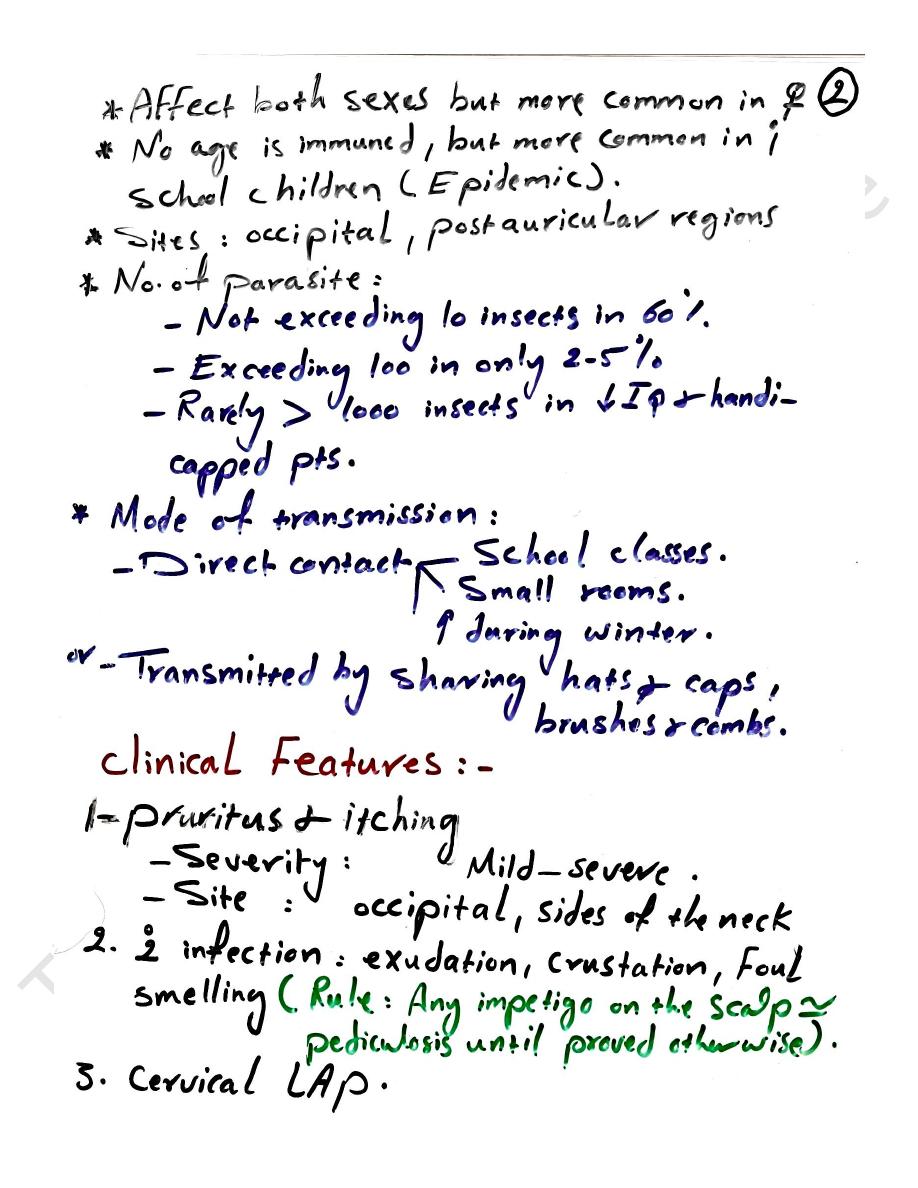 * Affect both sexes but more common in ♀ ②
* No age is immuned, but more common in
school children (Epidemic).
* Sites : occipital, postauricular regions
* No. of parasite :
- Not exceeding 10 insects in 60%.
- Exceeding 100 in only 2-5%
- Rarely > 1000 insects in ↓IQ & handi-
capped pts.
* Mode of transmission :
- Direct contact School classes.
Small rooms.
↑ during winter.
or - Transmitted by sharing hats & caps,
brushes & combs.
Clinical Features :-
1- pruritus & itching
- Severity : Mild - severe .
- Site : occipital, sides of the neck
2. 2° infection : exudation, crustation, Foul
smelling (Rule : Any impetigo on the scalp ≃
pediculosis until proved otherwise).
3. Cervical LAP.